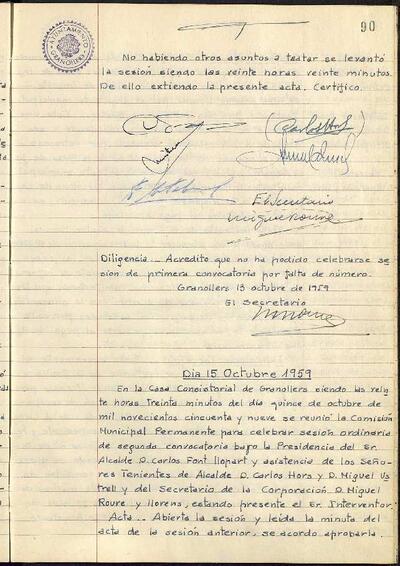 90
AYUNTAMIENTO
GRANOLLERS
No habiendo otros asuntos a tratar se levantó
la sesión siendo las veinte horas veinte minutos.
De ello extiendo la presente acta. Certifico.
El Secretario
Miguel Roure
Diligencia._ Acredito que no ha podido celebrarse se
sion de primera convocatoria por falta de número.
Granollers 13 octubre de 1959
El Secretario
Dia 15 Octubre 1959
En la Casa Consistorial de Granollers siendo las vein
te horas treinta minutos del dia quince de octubre de
mil novecientos cincuenta y nueve se reunió la Comisión
Municipal Permanente para celebrar sesión ordinaria
de segunda convocatoria bajo la Presidencia del Sr.
Alcalde D. Carlos Font llopart y asistencia de los Seño
res Tenientes de Alcalde D. Carlos Hors y D. Miguel Us
trell y del Secretario de la Corporación D. Miguel
Roure y llorens, estando presente el Sr. Interventor.
Acta._ Abierta la sesión y leida la minuta del
acta de la sesión anterior, se acordo aprobarla.